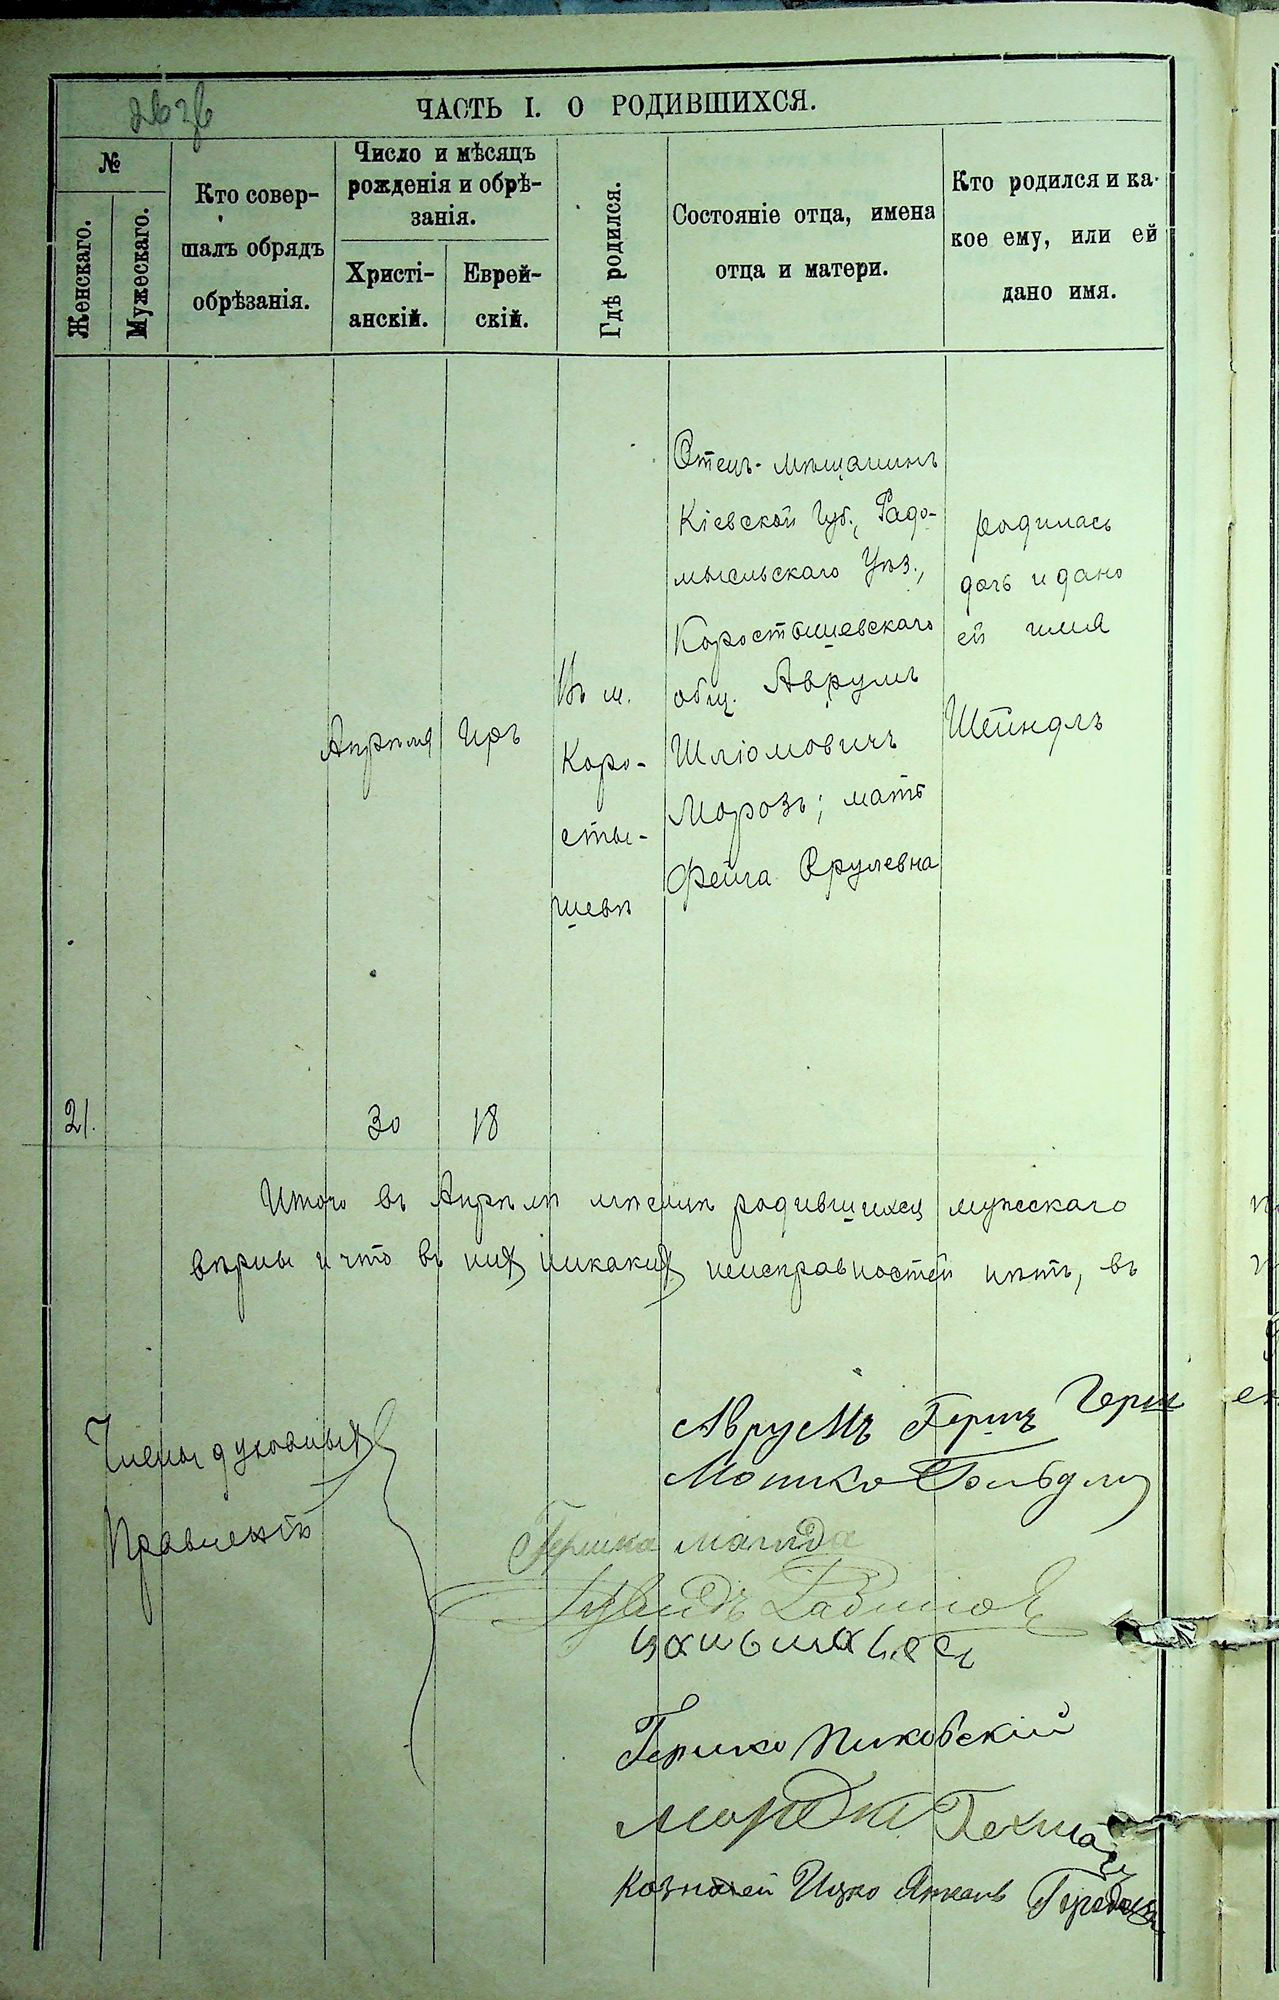 ЧАСТЬ I. О РОДИВШИХСЯ.
№
Женскаго.
Мужескаго.
Кто совер-
шалъ обрядъ
обрѣзанія.
Число и мѣсяцъ
рожденія и обрѣ-
занія.
Христі-
анскій.
Еврей-
скій.
Гдѣ родился.
Состояніе отца, имена
отца и матери.
Кто родился и ка-
кое ему, или ей
дано имя.
21.
Апрѣля
30
Иръ
18
Въ м.
Коро-
сты-
шевѣ
Отецъ- мѣщанинъ
Кіевской Губ., Радо-
мысльскаго Уѣз.,
Коростышевскаго
общ. Аврумъ
Шліомовичъ
Морозъ; мать
Фейга Срулевна
родилась
дочь и дано
ей имя
Шейндлъ
Итого въ Апрѣлѣ мѣсяцѣ родившихся мужескаго
вѣрны и что въ них никаких неисправностей нѣтъ, въ
Члены духовных
Правленій
Аврумъ Герш
Мошко
Гершко
Гершко Пиковскій
Мордко
Казначей Ицко Янкель